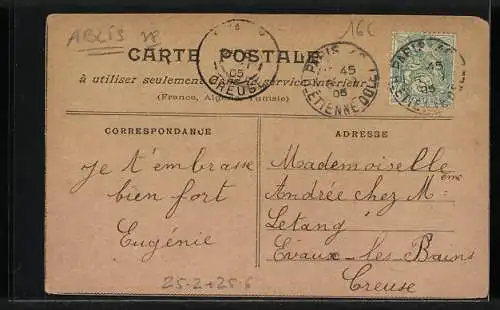 ABLIS 78
16E
CARTE POSTALE
à utiliser seulement service intérieur
(France, Algérie, Tunisie)
05
CREUSE
PARIS
45
05
ETIENNE DOLET
PARIS
45
05
CORRESPONDANCE
ADRESSE
je t'embrasse
bien fort
Eugénie
Mademoiselle
Andrée chez Mme
Letang
Evaux-les-Bains
Creuse